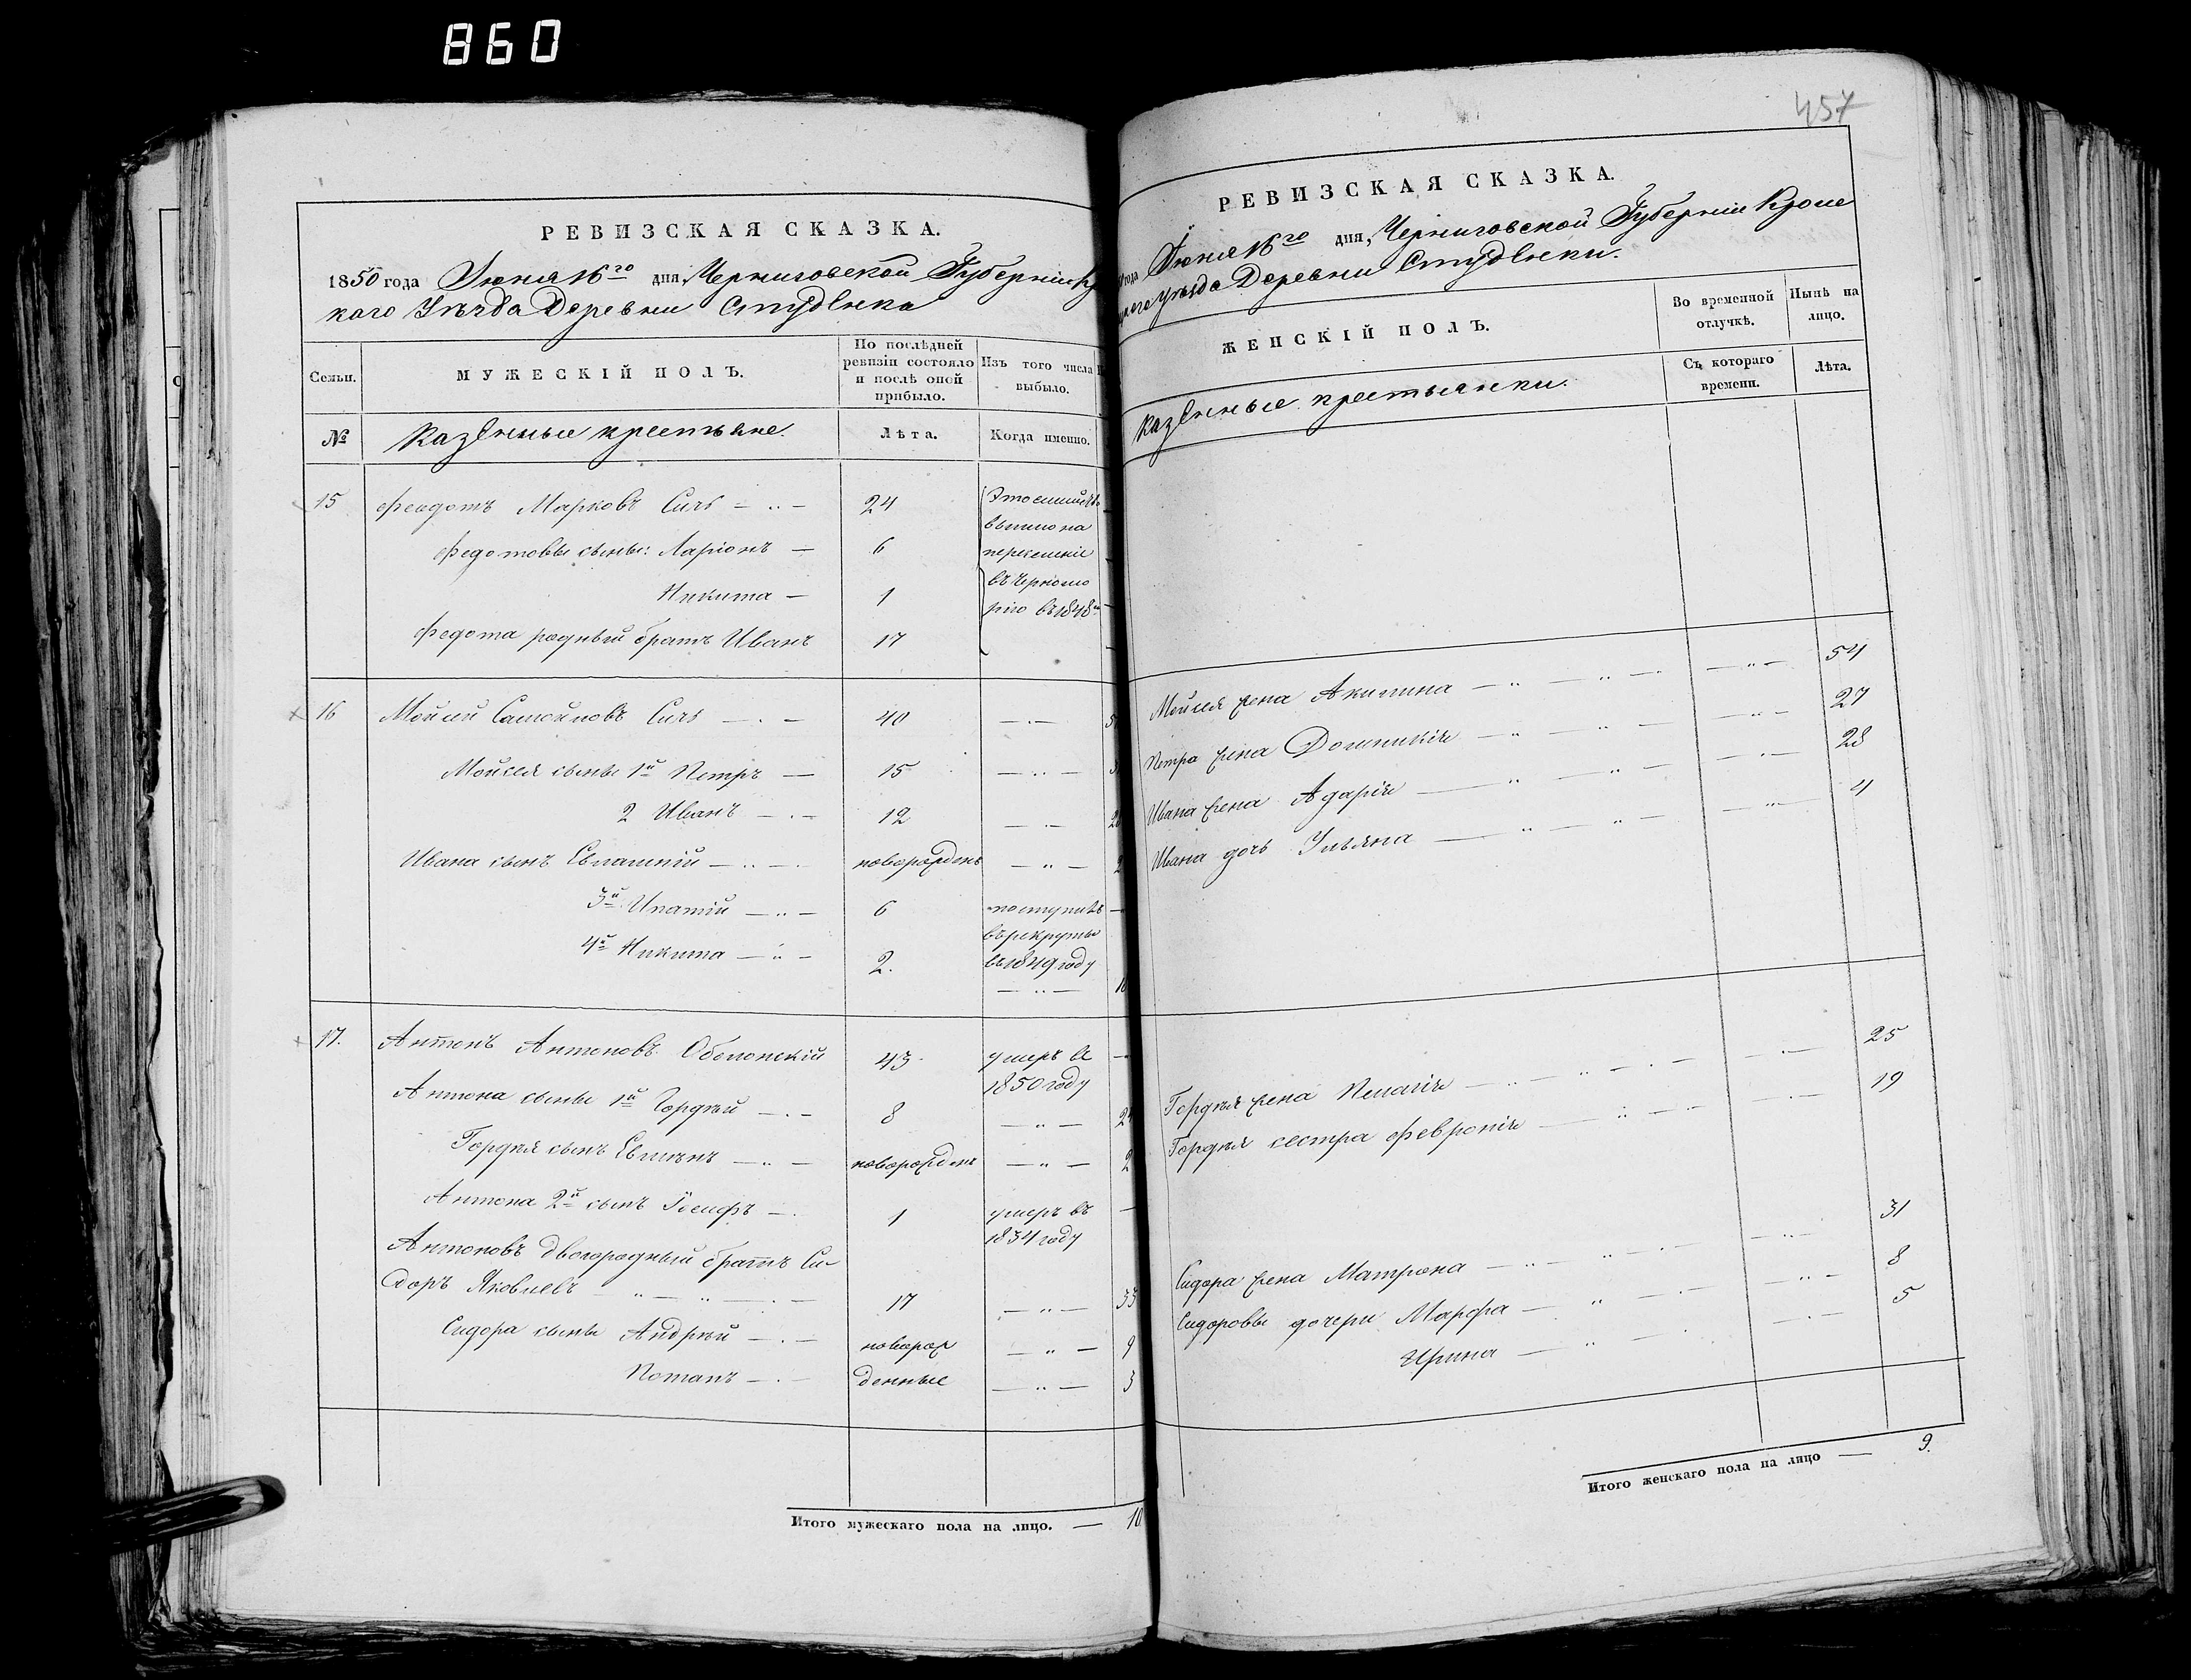 860
РЕВИЗСКАЯ СКАЗКА.
1850 года Іюня 16го дня, Черниговской Губерніи Кр
каго Уѣзда Деревни Студенка
Семьи.
МУЖЕСКІЙ ПОЛЪ.
По послѣдней ревизіи состояло и послѣ оной прибыло.
Изъ того числа выбыло.
№
Казенные крестьяне.
Лѣта.
Когда именно.
15 Феодотъ Марковъ Сичъ — 24
Это
вышло на
Федотовы сыны: Ларіонъ — 6
переселеніе
Никита — 1
въ Черномо
рію въ 1848
Федота родный братъ Иванъ 17
16 Мойсей Самойловъ Сичъ — 40
Мойсея сыны 1й Петръ — 15
2 Иванъ — 12
Ивана сынъ Евлампій — новорожденъ — 2
3й Ипатій — 6 поступилъ
въ рекруты
4й Никита — 2. въ 1849 году
17. Антонъ Антоновъ Оболонскій 43 умеръ въ
1850 году
Антона сыны 1й Гордѣй — 8
Гордѣя сынъ — новорожденъ — 2
Антона 2й сынъ Іосифъ — 1 умеръ въ
1834 году
Антоновъ двоюродный братъ Си-
доръ Яковлевъ — 17 — 33
Сидора сыны Андрѣй — новорож — 9
Потапъ — денные — 3
Итого мужескаго пола на лицо. — 10
457
РЕВИЗСКАЯ СКАЗКА.
года Іюня 16го дня, Черниговской Губерніи Кроле
Уѣзда Деревни Студенки.
ЖЕНСКІЙ ПОЛЪ.
Во временной отлучкѣ.
Нынѣ на лицо.
Казенные крестьянки.
Съ котораго времени.
Лѣта.
Мойсея жена Акилина — 54
Петра жена Домникія — 27
Ивана жена Адарія — 28
Ивана дочь Ульяна — 4
Гордѣя жена Пелагія — 25
Гордѣя сестра Февронія — 19
Сидора жена Матрона — 31
Сидоровы дочери Марфа — 8
Ирина — 5
Итого женскаго пола на лицо — 9.